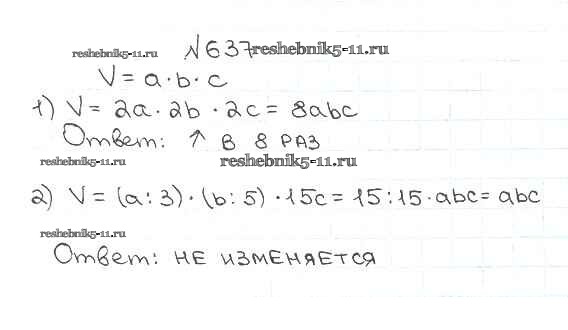 reshebnik5-11.ru №637 reshebnik5-11.ru
V = a · b · c
1) V = 2a · 2b · 2c = 8abc
Ответ: ↑ в 8 раз
reshebnik5-11.ru reshebnik5-11.ru
2) V = (a : 3) · (b : 5) · 15c = 15 : 15 · abc = abc
reshebnik5-11.ru
Ответ: не изменяется